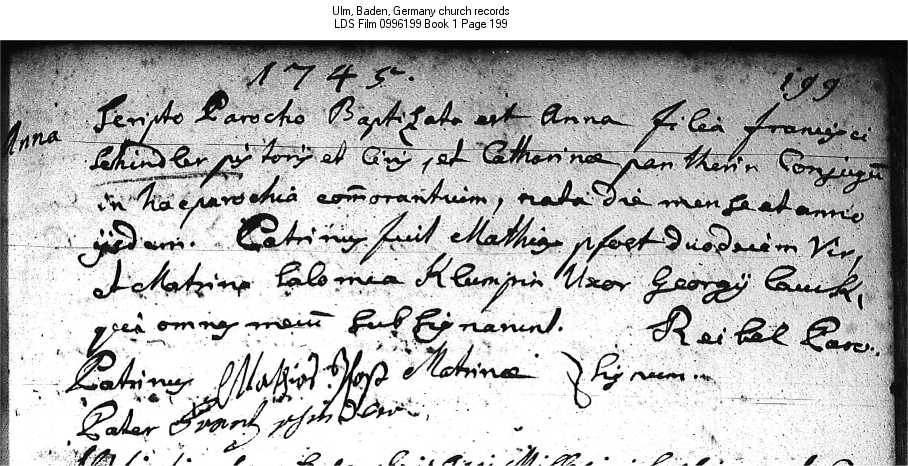 Ulm, Baden, Germany church records
LDS Film 0996199 Book 1 Page 199
1745.
199
Anna
scripto Parocho Baptizata est Anna filia francisci
schindler pistoris et Civis, et Catharinæ pantherin Conjugū
in hac parochia com̄orantium, nata die mense et anno
ijsdem. Patrinus fuit Mathias pfost duodecim Vir,
et Matrina Salomea Klumpin Uxor Georgij lauck,
qui omnes mecū subsignarunt. Reibel Paro.
Patrinus Mathias Pfost Matrinæ signum.
Pater Frantz schindler